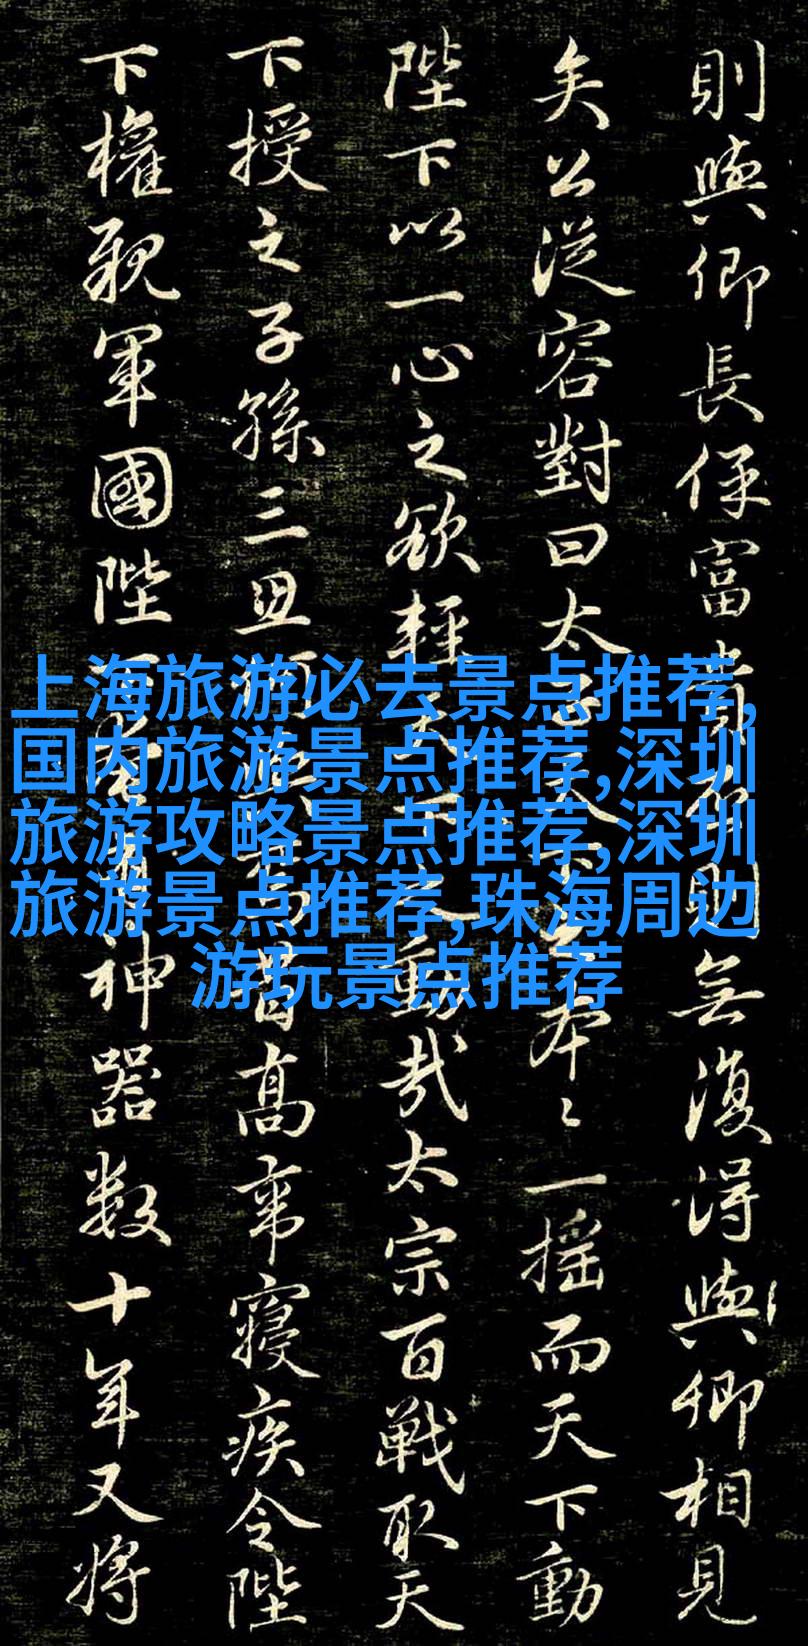 則與卿長保富貴則無復得與卿相見
矣公從容對曰太子天下之本〻一搖而天下動
陛下以一心之欲輕天下之動哉太宗百戰取天
下授之子孫三昔高帝寢疾令陛
下權親軍國陛下神器數十年又將
上海旅游必去景点推荐,
国内旅游景点推荐,深圳
旅游攻略景点推荐,深圳
旅游景点推荐,珠海周边
游玩景点推荐